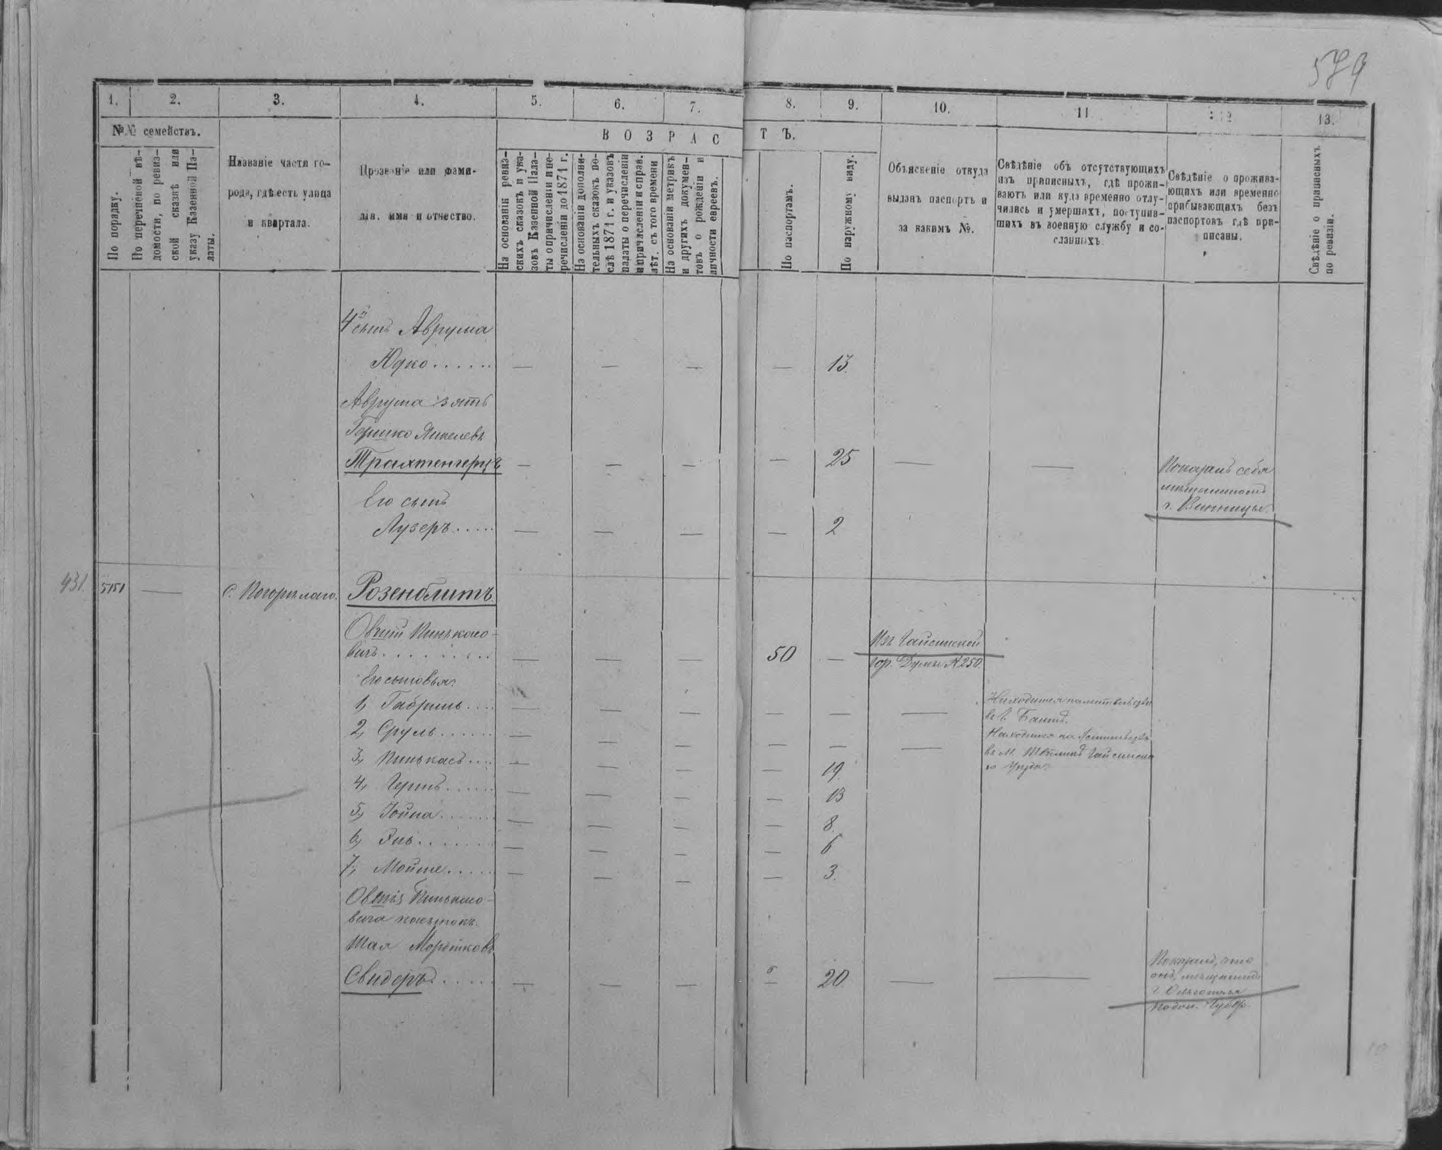 579
1. 2. 3. 4. 5. 6. 7. 8. 9. 10. 11 12 13.
№№ семействъ.
По порядку.
По перечневой вѣ-
домости, по ревиз-
ской сказкѣ или
указу Казенной Па-
латы.
Названіе части го-
рода, гдѣ есть улица
и квартала.
Прозваніе или фами-
лія, имя и отчество.
ВОЗРАСТЪ.
На основаніи ревиз-
скихъ сказокъ и ука-
зовъ Казенной Пала-
ты о причисленіи и пе-
речисленіи до 1871 г.
На основаніи дополни-
тельныхъ сказокъ по-
слѣ 1871 г. и указовъ
палаты о перечисленіи
и причисленіи и справ.
лѣт. съ того времени
На основаніи метрикъ
и другихъ докумен-
товъ о рожденіи и
личности евреевъ.
По паспортамъ.
По наружному виду.
Объясненіе откуда
выданъ паспортъ и
за какимъ №.
Свѣдѣніе объ отсутствующихъ
изъ приписныхъ, гдѣ прожи-
ваютъ или куда временно отлу-
чились и умершахъ, поступив-
шихъ въ военную службу и со-
сланныхъ.
Свѣдѣніе о прожива-
ющихъ или временно
прибывающихъ безъ
паспортовъ гдѣ при-
писаны.
Свѣдѣніе о приписныхъ
по ревизіи.
4й сынъ Аврума
Юдко...... — — — — 13.
Аврума зять
Гершко
Трахтенгерцъ — — — — 25 — — Показалъ себя
мѣщаниномъ
г. Винницы.
Его сынъ
Лузеръ..... — — — — 2
431. 5151 — Розенблитъ
Овшій Пинькасо-
вичъ........ — — — 50 — Изъ Гайсинской
Гор. Думы № 250.
Его сыновья:
1, Габриль.... — — — — — Находится
въ г. Балтѣ.
2, Сруль...... — — — — — Находится на
въ м. Гайсинска-
го Уѣзда.
3, Пинькасъ.... — — — — 19
4, Герш — — — — 13
5, Іойна....... — — — — 8.
6, — — — — 6
7, Мойше..... — — — — 3.
Овшія Пинькасо-
вича
Шая Мор
Свидеръ..... — — — — 20. — — Показалъ, что
онъ мѣщанинъ
г. Ольгополя
Подол. Губер.